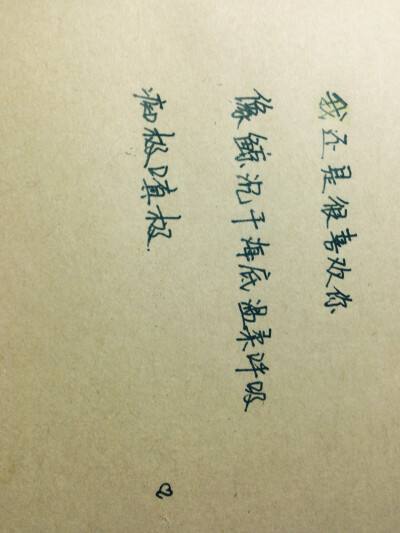 我还是很喜欢你
像鲸沉于海底温柔呼吸
痴极嗔极.